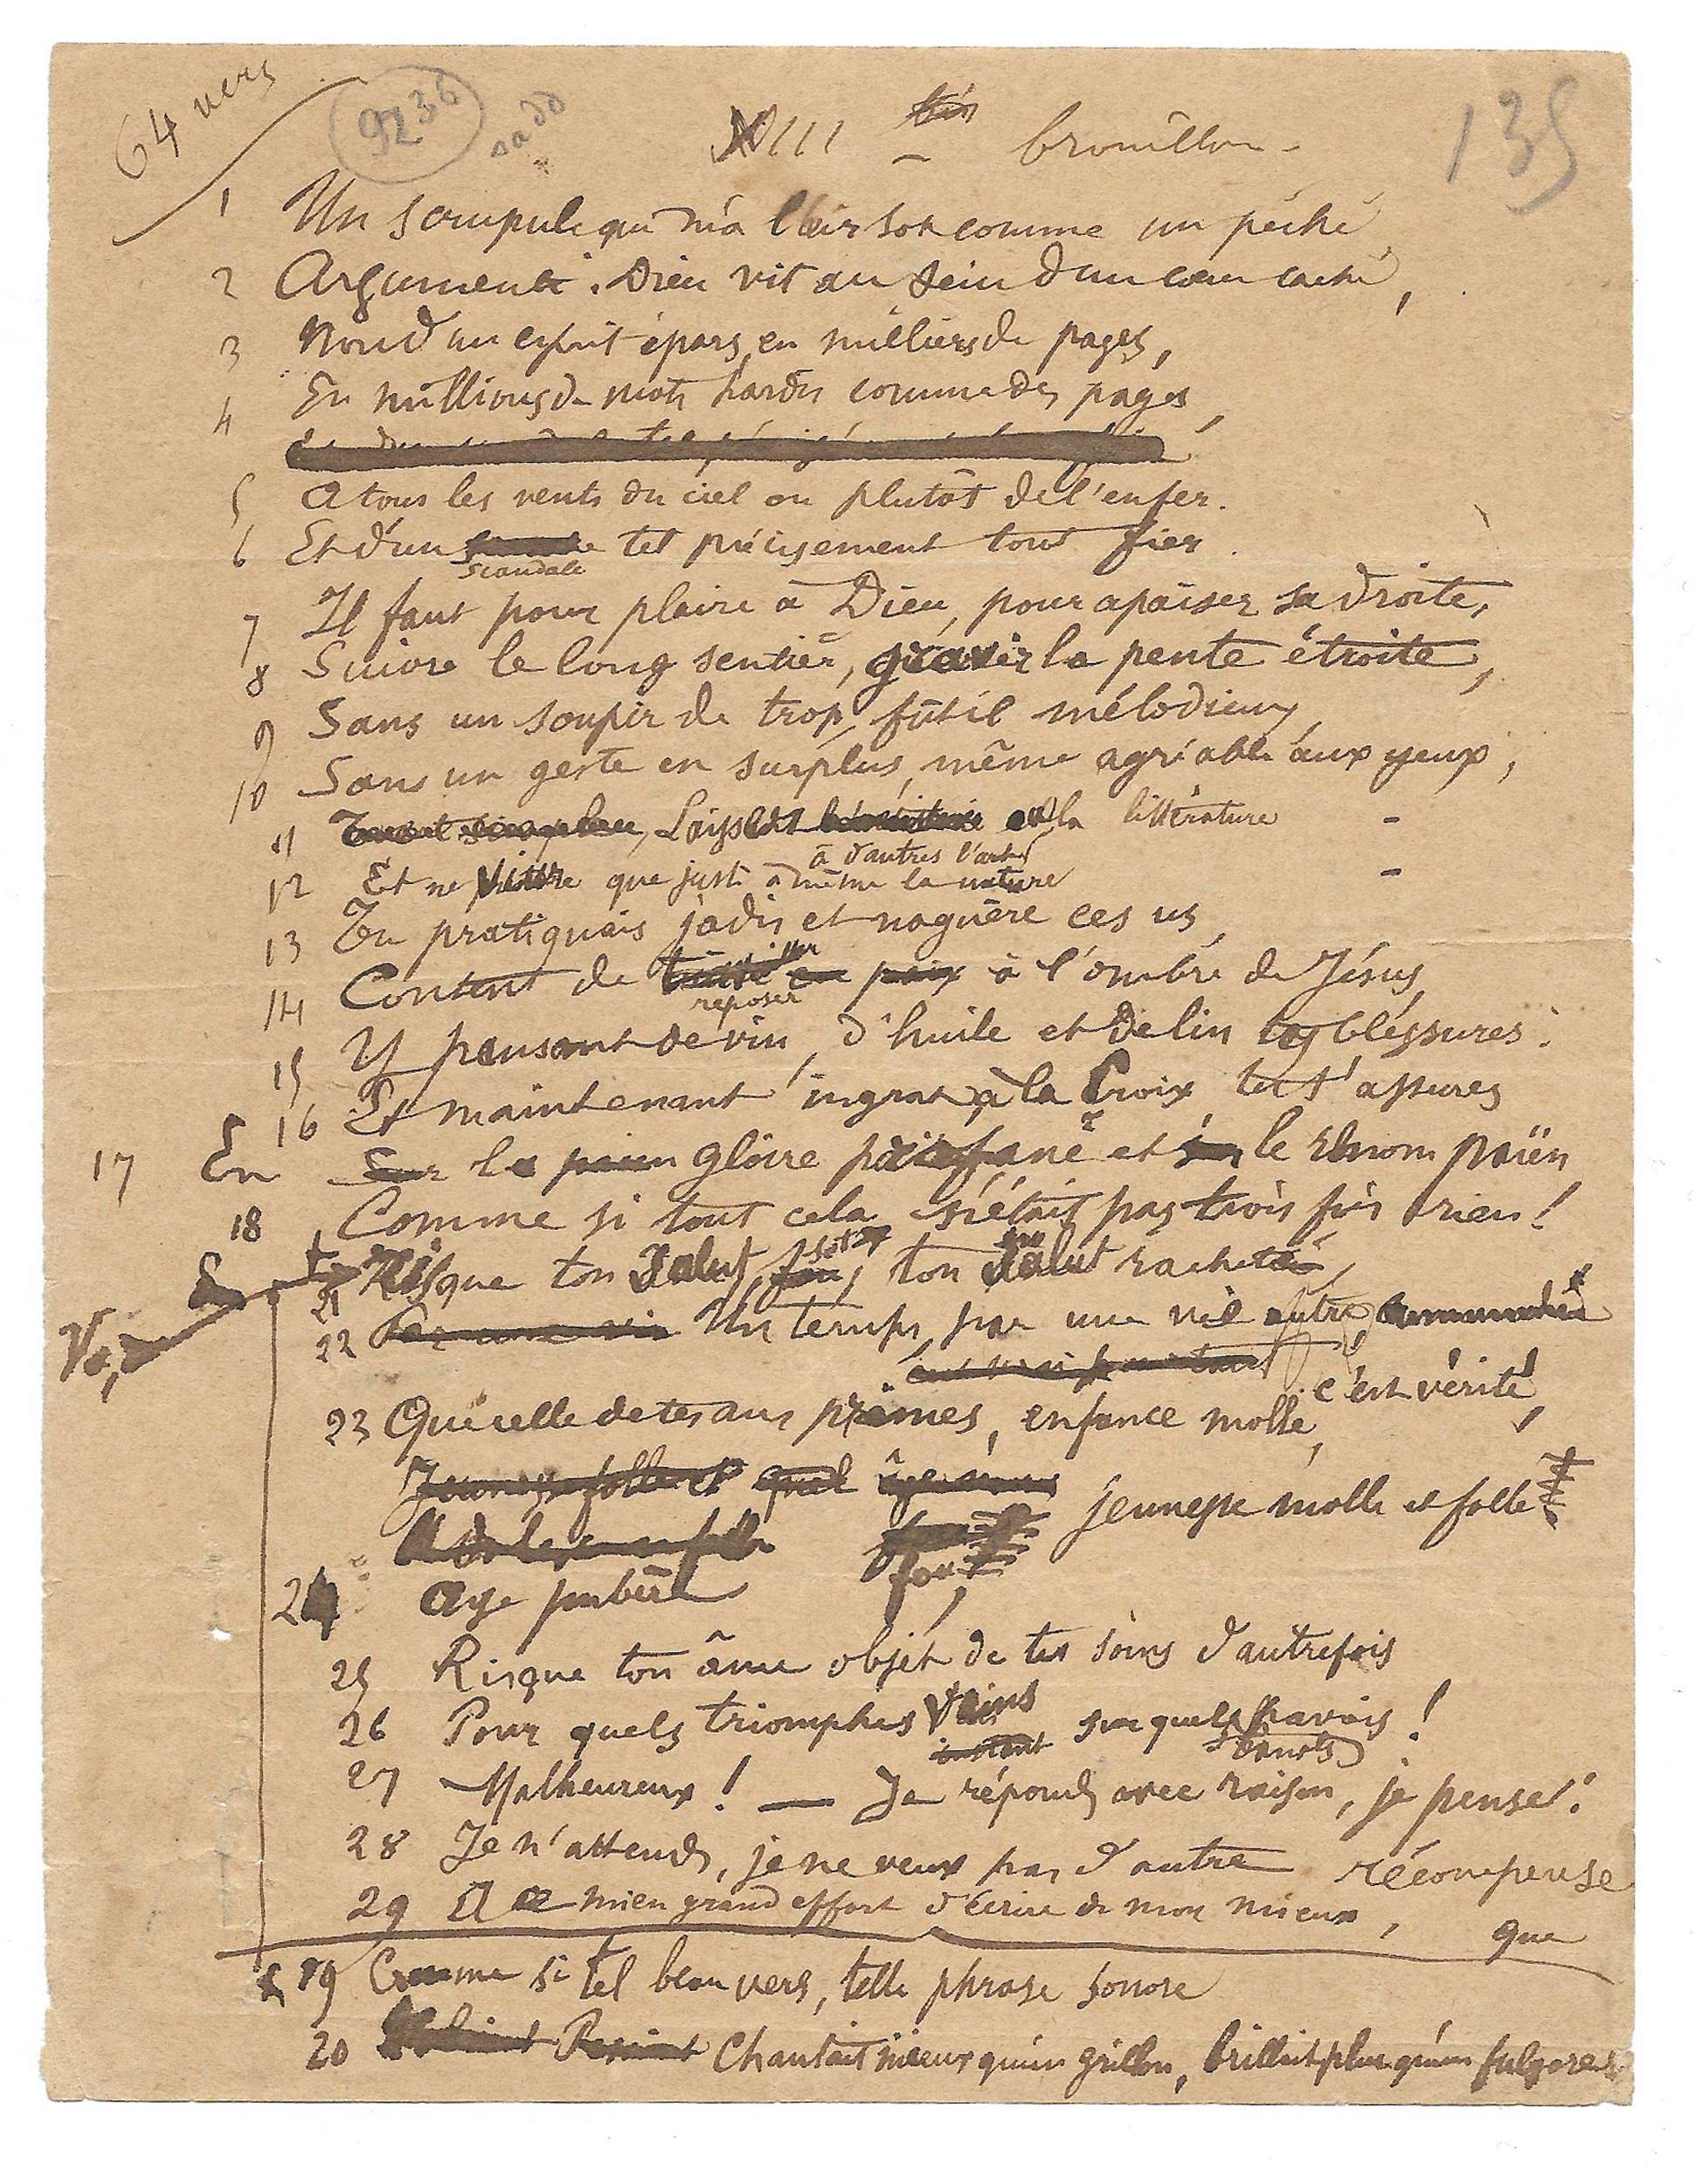 64 vers
9236
135
XVIII bis brouillon -
1 Un scrupule qui m'a l'air sot comme un péché
2 Argumente. Dieu vit au sein d'un cœur caché,
3 Non d'un esprit épars, en milliers de pages,
4 En millions de mots hardis comme des pages,
5 A tous les vents du ciel ou plutôt de l'enfer.
6 Et d'un scandale tel précisément tout fier.
7 Il faut pour plaire à Dieu, pour apaiser sa droite,
8 Suivre le long sentier, gravir la pente étroite,
9 Sans un soupir de trop, fût-il mélodieux,
10 Sans un geste en surplus, même agréable aux yeux,
11 Laisser à d'autres l'art et la littérature -
12 Et ne vivre que juste à même la nature -
13 Tu pratiquais jadis et naguère ces us,
14 Content de reposer à l'ombre de Jésus,
15 Y pansant de vin, d'huile et de lin tes blessures :
16 Et maintenant, ingrat à la Croix, tu t'assures
17 En la gloire profane et le renom païen
18 Comme si tout cela n'était pas trois fois rien !
21 Risque ton salut, ton salut racheté
22 Un temps, par une vie autre, c'est vérité,
23 Que celle de tes ans primes, enfance molle,
24 Age pubère fou, jeunesse molle et folle
25 Risque ton âme objet de tes soins d'autrefois
26 Pour quels triomphes vains sur quels banals pavois !
27 Malheureux ! — Je réponds avec raison, je pense :
28 Je n'attends, je ne veux pas d'autre récompense
29 A ce mien grand effort d'écrire de mon mieux, que
19 Comme si tel beau vers, telle phrase sonore
20 Chantait mieux qu'un grillon, brillait plus qu'un fulgore